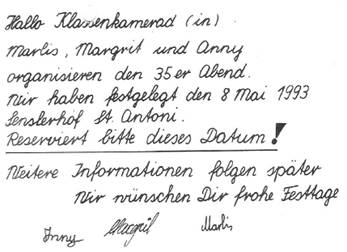 Hallo Klassenkamerad (in)
Marlis, Margrit und Anny
organisieren den 35er Abend.
Wir haben festgelegt den 8 Mai 1993
Senslerhof St. Antoni.
Reserviert bitte dieses Datum!
Weitere Informationen folgen später
Wir wünschen Dir frohe Festtage
Anny Margrit Marlis